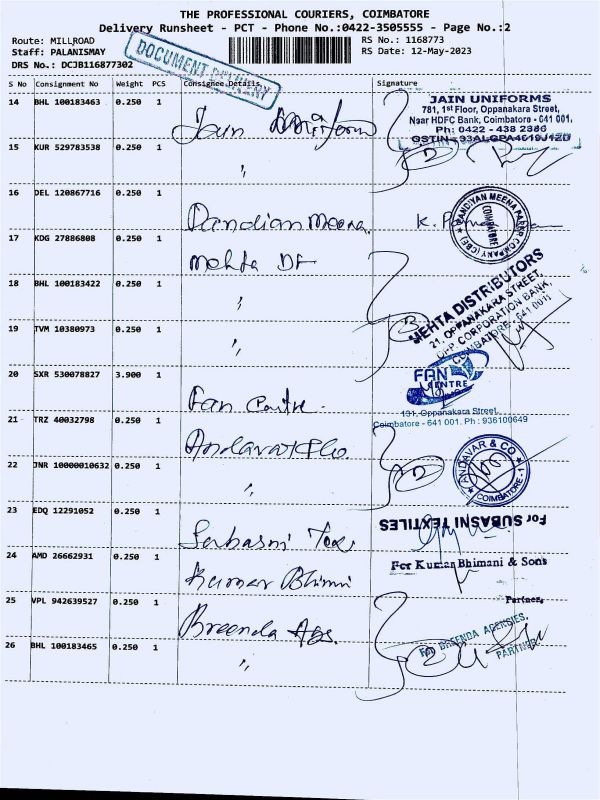 THE PROFESSIONAL COURIERS, COIMBATORE
Delivery Runsheet - PCT - Phone No.:0422-3505555 - Page No.:2
Route: MILLROAD
RS No.: 1168773
Staff: PALANISMAY
RS Date: 12-May-2023
DRS No.: DCJB116877302
DOCUMENT DELIVERY
S No Consignment No Weight PCS Consignee Details Signature
14 BHL 100183463 0.250 1
Jain Uniform
JAIN UNIFORMS
781, 1st Floor, Oppanakara Street,
Near HDFC Bank, Coimbatore - 641 001.
Ph: 0422 - 438 2386
15 KUR 529783538 0.250 1 "
2
16 DEL 120867716 0.250 1
Pandian Meena
PANDIYAN MEENA PAPER COMPANY (CBE)
COIMBATORE
17 KDG 27886808 0.250 1
Mehta DT
18 BHL 100183422 0.250 1 "
MEHTA DISTRIBUTORS
21, OPPANAKARA STREET,
OPP. CORPORATION BANK,
COIMBATORE - 641 001
19 TVM 10380973 0.250 1 "
3
20 SXR 530078827 3.900 1
Fan Centre
FAN CENTRE
131, Oppanakara Street,
Coimbatore - 641 001. Ph : 936100649
21 TRZ 40032798 0.250 1
Andavar & Co
22 JNR 10000010632 0.250 1 "
2
ANDAVAR & CO
COIMBATORE - 1
23 EDQ 12291052 0.250 1
Subasni Tex
For SUBASNI TEXTILES
24 AMD 26662931 0.250 1
Kumar Bhimni
For Kumar Bhimani & Sons
Partner
25 VPL 942639527 0.250 1
Breenda Ags.
For BREENDA AGENCIES,
PARTNER
26 BHL 100183465 0.250 1 "
2